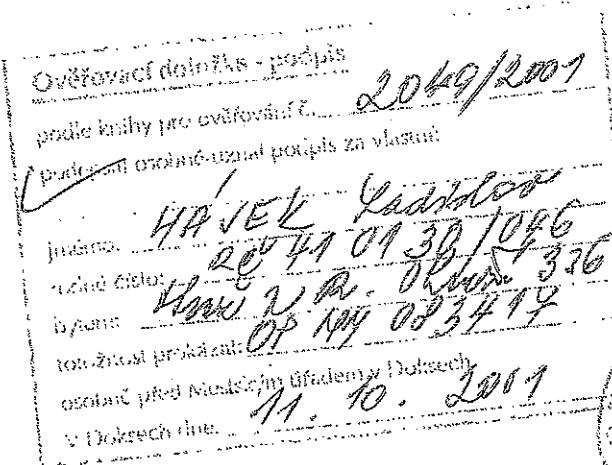 Ověřovací doložka - podpis
podle knihy pro ověřování č. 2049/2001
podepsal osobně-uznal podpis za vlastní:
jméno: HÁJEK Ladislav
rodné číslo: RČ 41 01 30 / 046
bytem: N. R. 326
totožnost prokázal: OP 083417
osobně před Městským úřadem v Doksech
v Doksech dne. 11. 10. 2001